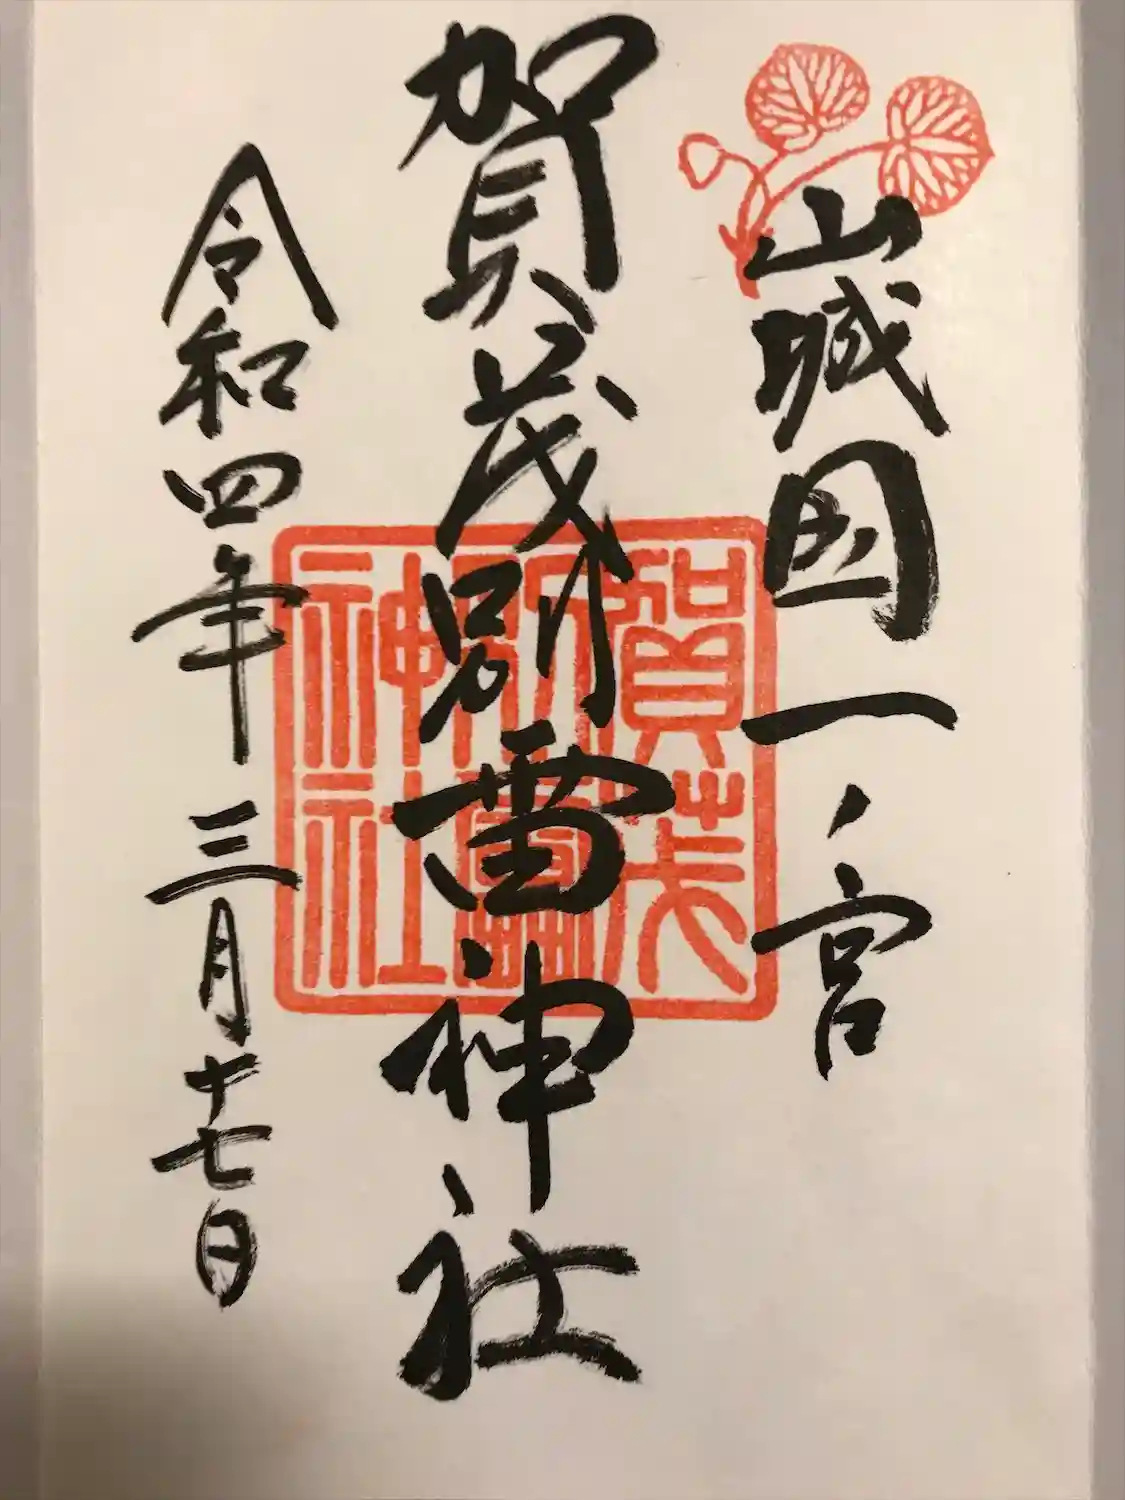 山城国一ノ宮
賀茂別雷神社
賀茂
別雷
神社
令和四年三月十七日